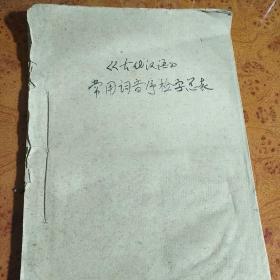 《古代汉语》
常用词音序检字总表